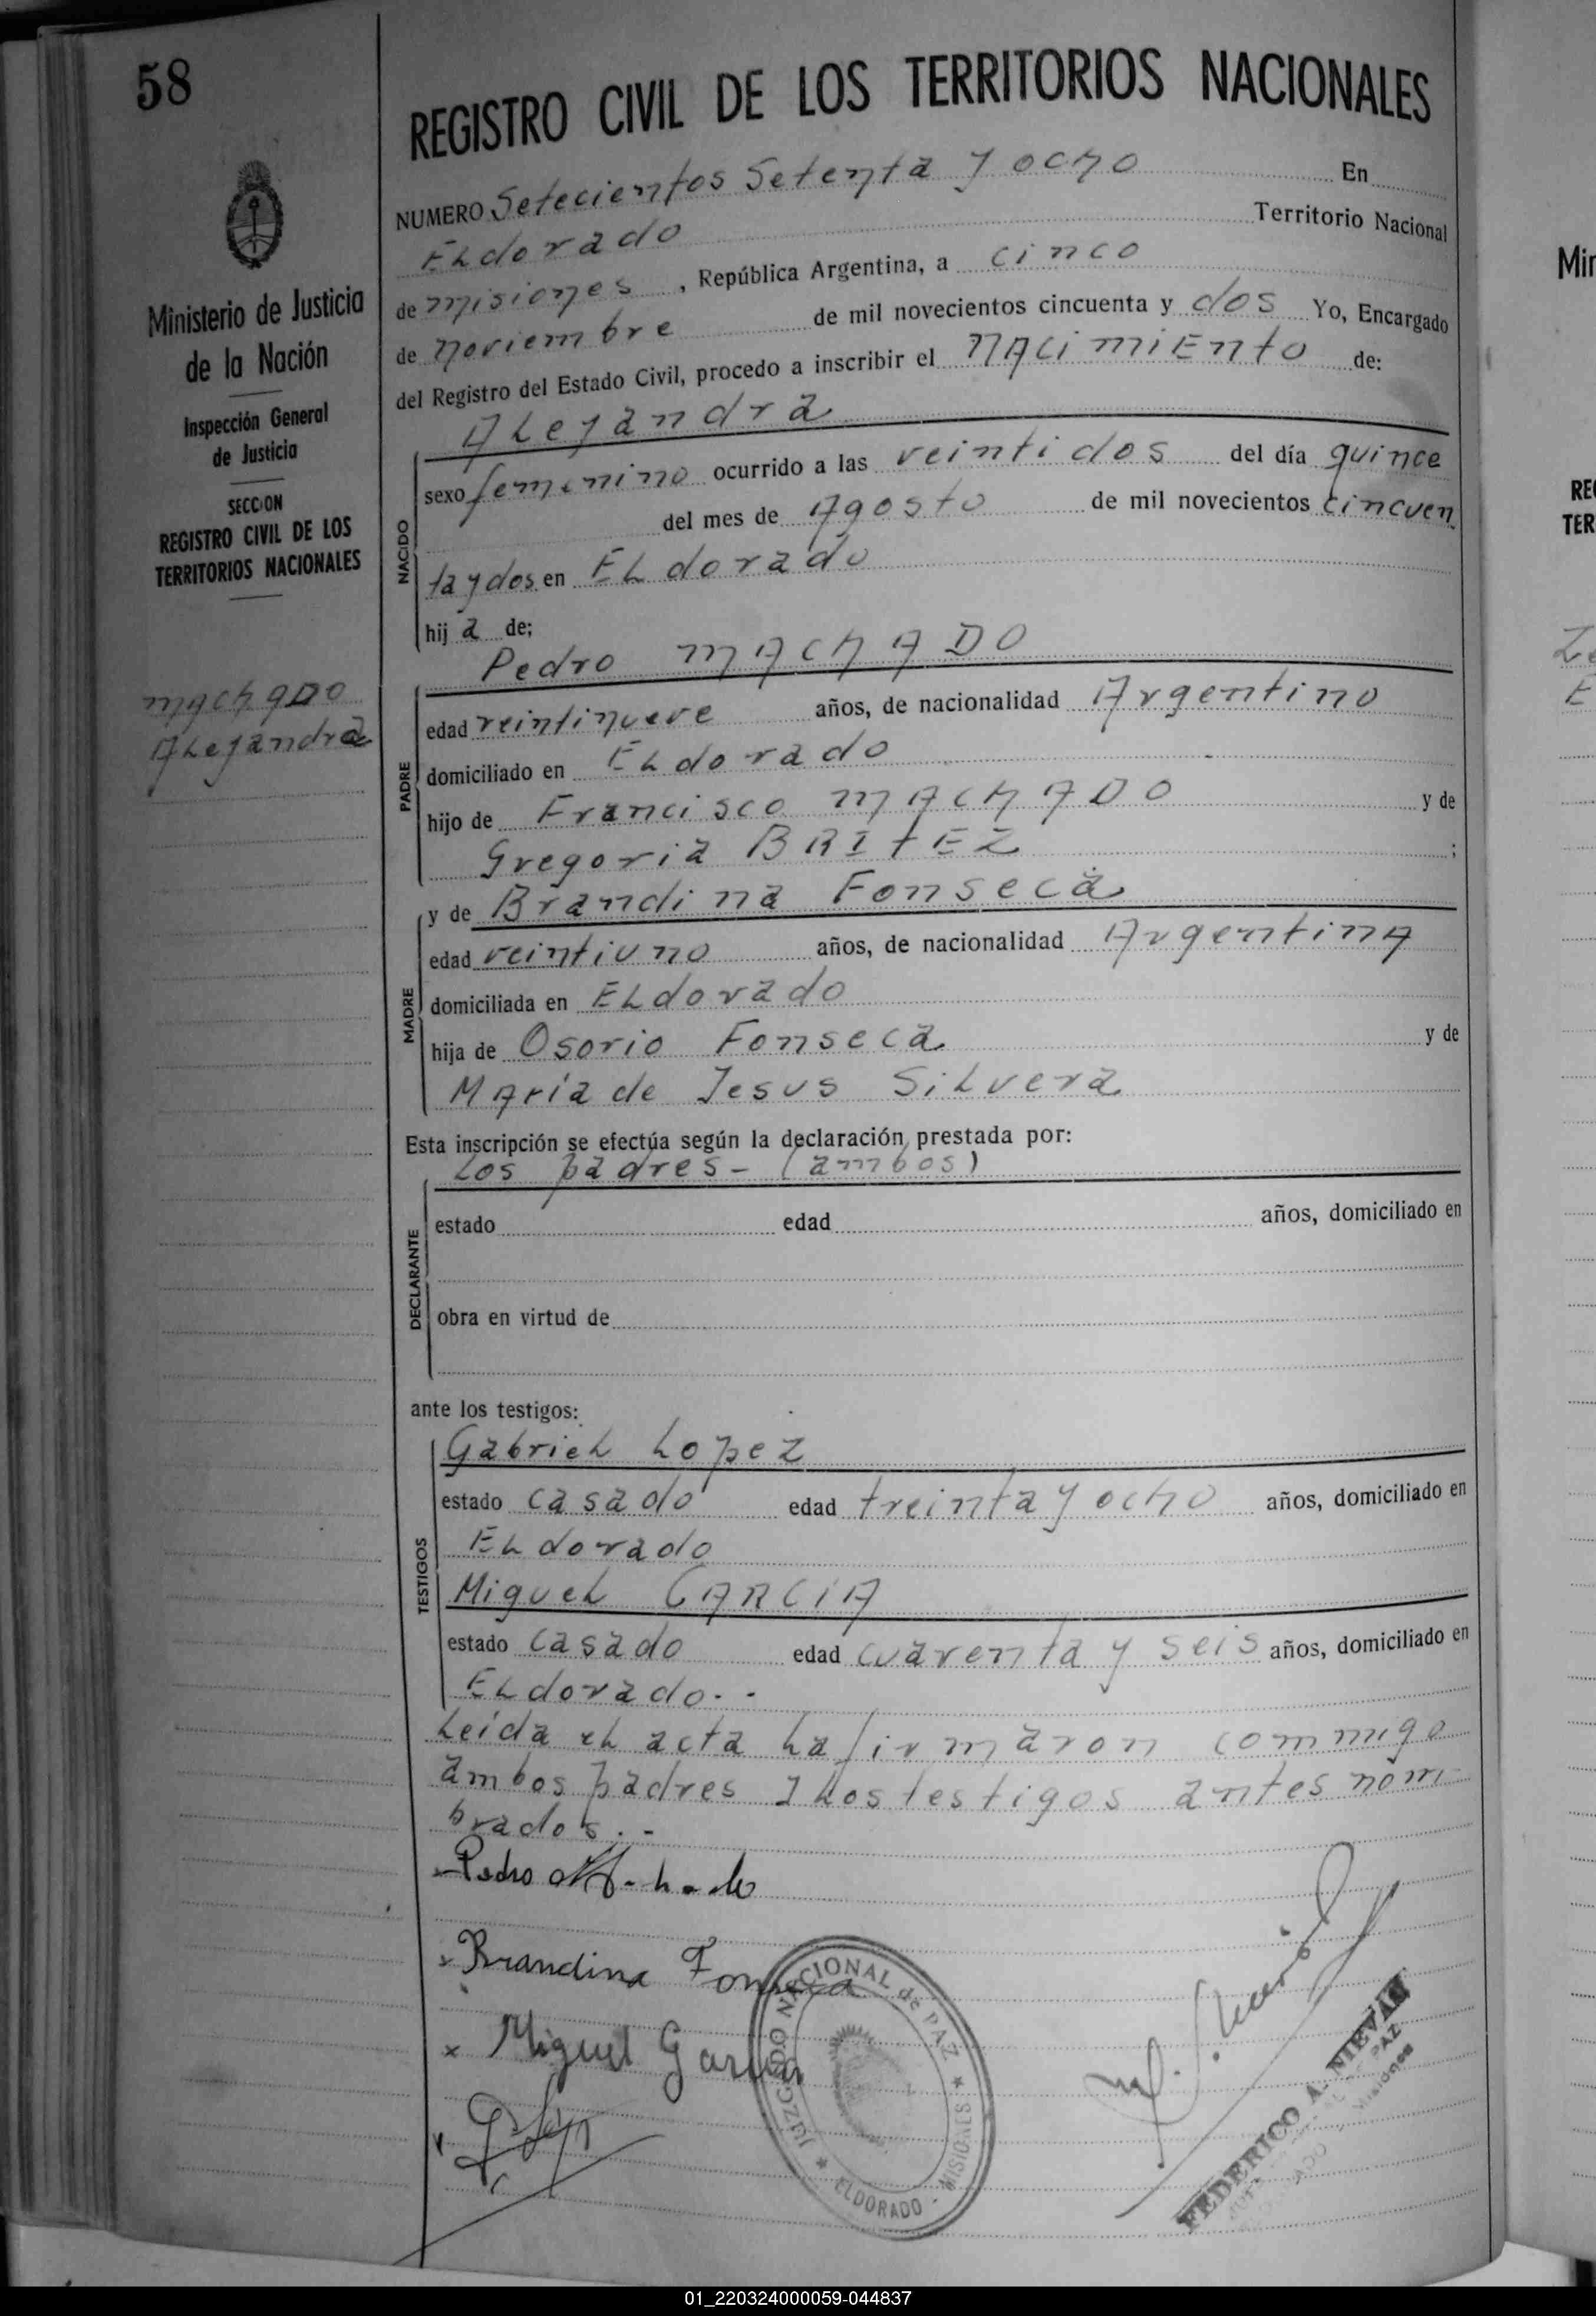 58
REGISTRO CIVIL DE LOS TERRITORIOS NACIONALES
Ministerio de Justicia
de la Nación
Inspección General
de Justicia
SECCION
REGISTRO CIVIL DE LOS
TERRITORIOS NACIONALES
MACHADO
ALejandra
NUMERO Setecientos Setenta y ocho En
ELdorado Territorio Nacional
de misiones, República Argentina, a cinco
de noviembre de mil novecientos cincuenta y dos Yo, Encargado
del Registro del Estado Civil, procedo a inscribir el NACimiEnto de:
ALejandra
NACIDO
sexo femenino ocurrido a las veintidos del día quince
del mes de Agosto de mil novecientos cincuen
ta y dos en ELdorado
hija de;
Pedro MACHADO
PADRE
edad veintinueve años, de nacionalidad Argentino
domiciliado en ELdorado
hijo de Francisco MACHADO y de
Gregoria BRItEZ ;
y de Brandina Fonseca
MADRE
edad veintiuno años, de nacionalidad ArgentinA
domiciliada en ELdorado
hija de Osorio Fonseca y de
MAría de Jesus SiLvera
Esta inscripción se efectúa según la declaración prestada por:
Los padres - (ambos)
DECLARANTE
estado edad años, domiciliado en
obra en virtud de
ante los testigos:
GabrieL Lopez
TESTIGOS
estado casado edad treinta y ocho años, domiciliado en
ELdorado
MigueL GARCiA
estado casado edad cuarenta y seis años, domiciliado en
ELdorado. -
Leída eL acta La firmaron conmigo
ambos padres y Los testigos antes nom-
brados. -
Pedro Machado
x Brandina Fonseca
x Miguel Garcia
JUZGADO NACIONAL de PAZ
ELDORADO - MISIONES
FEDERICO A. NIEVAS
PAZ
Misiones
01_220324000059-044837